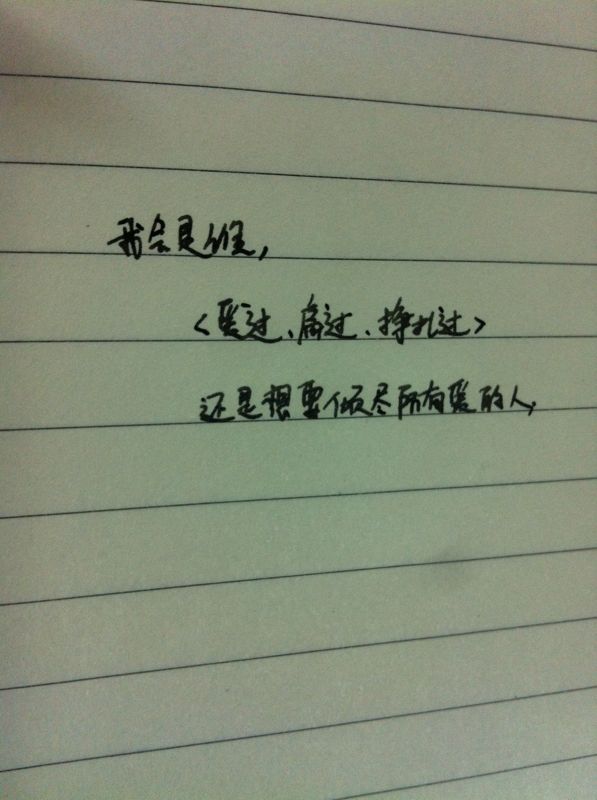 我会是谁,
<爱过、痛过、挣扎过>
还是想要倾尽所有爱的人,